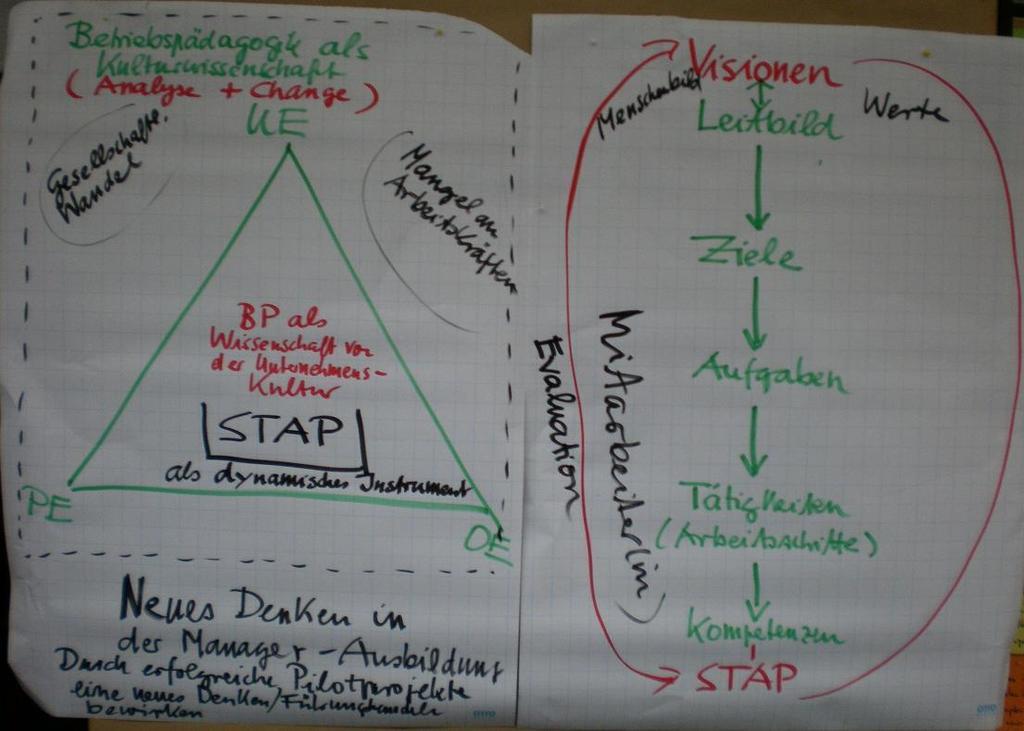 Betriebspädagogik als
Kulturwissenschaft
(Analyse + Change)
UE
Gesellschafts.
Wandel
Mangel an
Arbeitskräften
BP als
Wissenschaft von
der Unternehmens-
Kultur
STAP
als dynamisches Instrument
PE
OE
Neues Denken in
der Manager-Ausbildung
Durch erfolgreiche Pilotprojekte
eine neues Denken/Führungshandeln
bewirken
Visionen
Menschenbild
Werte
Leitbild
Ziele
Aufgaben
Evaluation
Mitarbeiter(in)
Tätigkeiten
(Arbeitsschritte)
Kompetenzen
STAP